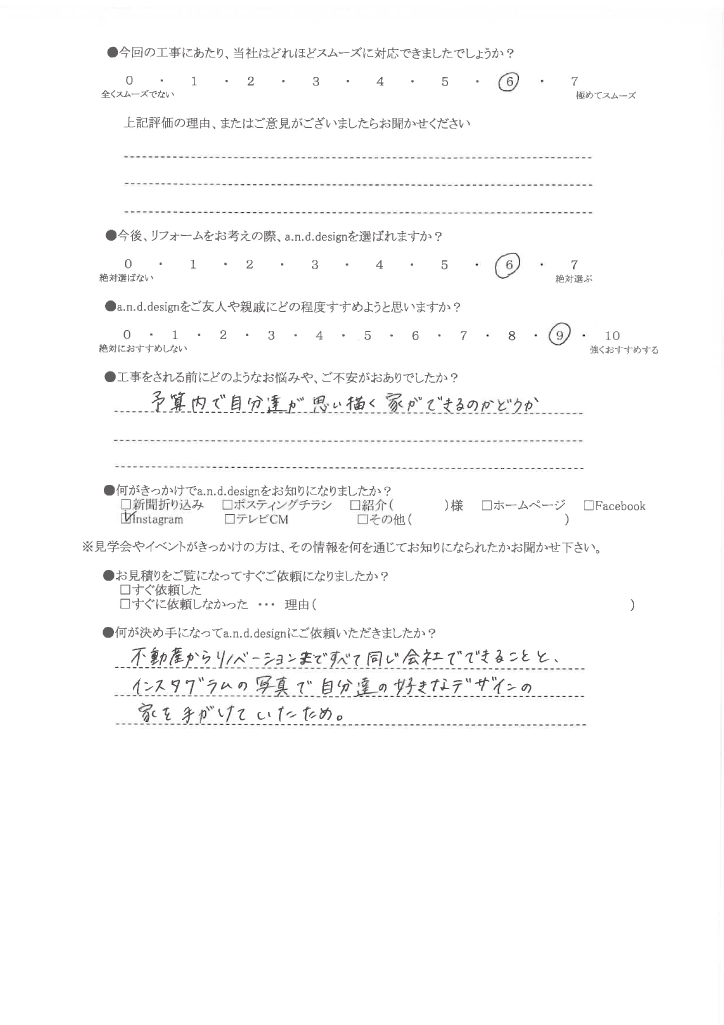 ●今回の工事にあたり、当社はどれほどスムーズに対応できましたでしょうか？
0 ・ 1 ・ 2 ・ 3 ・ 4 ・ 5 ・ 6 ・ 7
全くスムーズでない 極めてスムーズ
上記評価の理由、またはご意見がございましたらお聞かせください
●今後、リフォームをお考えの際、a.n.d.designを選ばれますか？
0 ・ 1 ・ 2 ・ 3 ・ 4 ・ 5 ・ 6 ・ 7
絶対選ばない 絶対選ぶ
●a.n.d.designをご友人や親戚にどの程度すすめようと思いますか？
0 ・ 1 ・ 2 ・ 3 ・ 4 ・ 5 ・ 6 ・ 7 ・ 8 ・ 9 ・ 10
絶対におすすめしない 強くおすすめする
●工事をされる前にどのようなお悩みや、ご不安がおありでしたか？
予算内で自分達が思い描く家ができるのかどうか
●何がきっかけでa.n.d.designをお知りになりましたか？
□新聞折り込み □ポスティングチラシ □紹介（ ）様 □ホームページ □Facebook
☑Instagram □テレビCM □その他（ ）
※見学会やイベントがきっかけの方は、その情報を何を通じてお知りになられたかお聞かせ下さい。
●お見積りをご覧になってすぐご依頼になりましたか？
□すぐ依頼した
□すぐに依頼しなかった ・・・ 理由（ ）
●何が決め手になってa.n.d.designにご依頼いただきましたか？
不動産からリノベーションまですべて同じ会社でできることと、
インスタグラムの写真で自分達の好きなデザインの
家を手がけていたため。